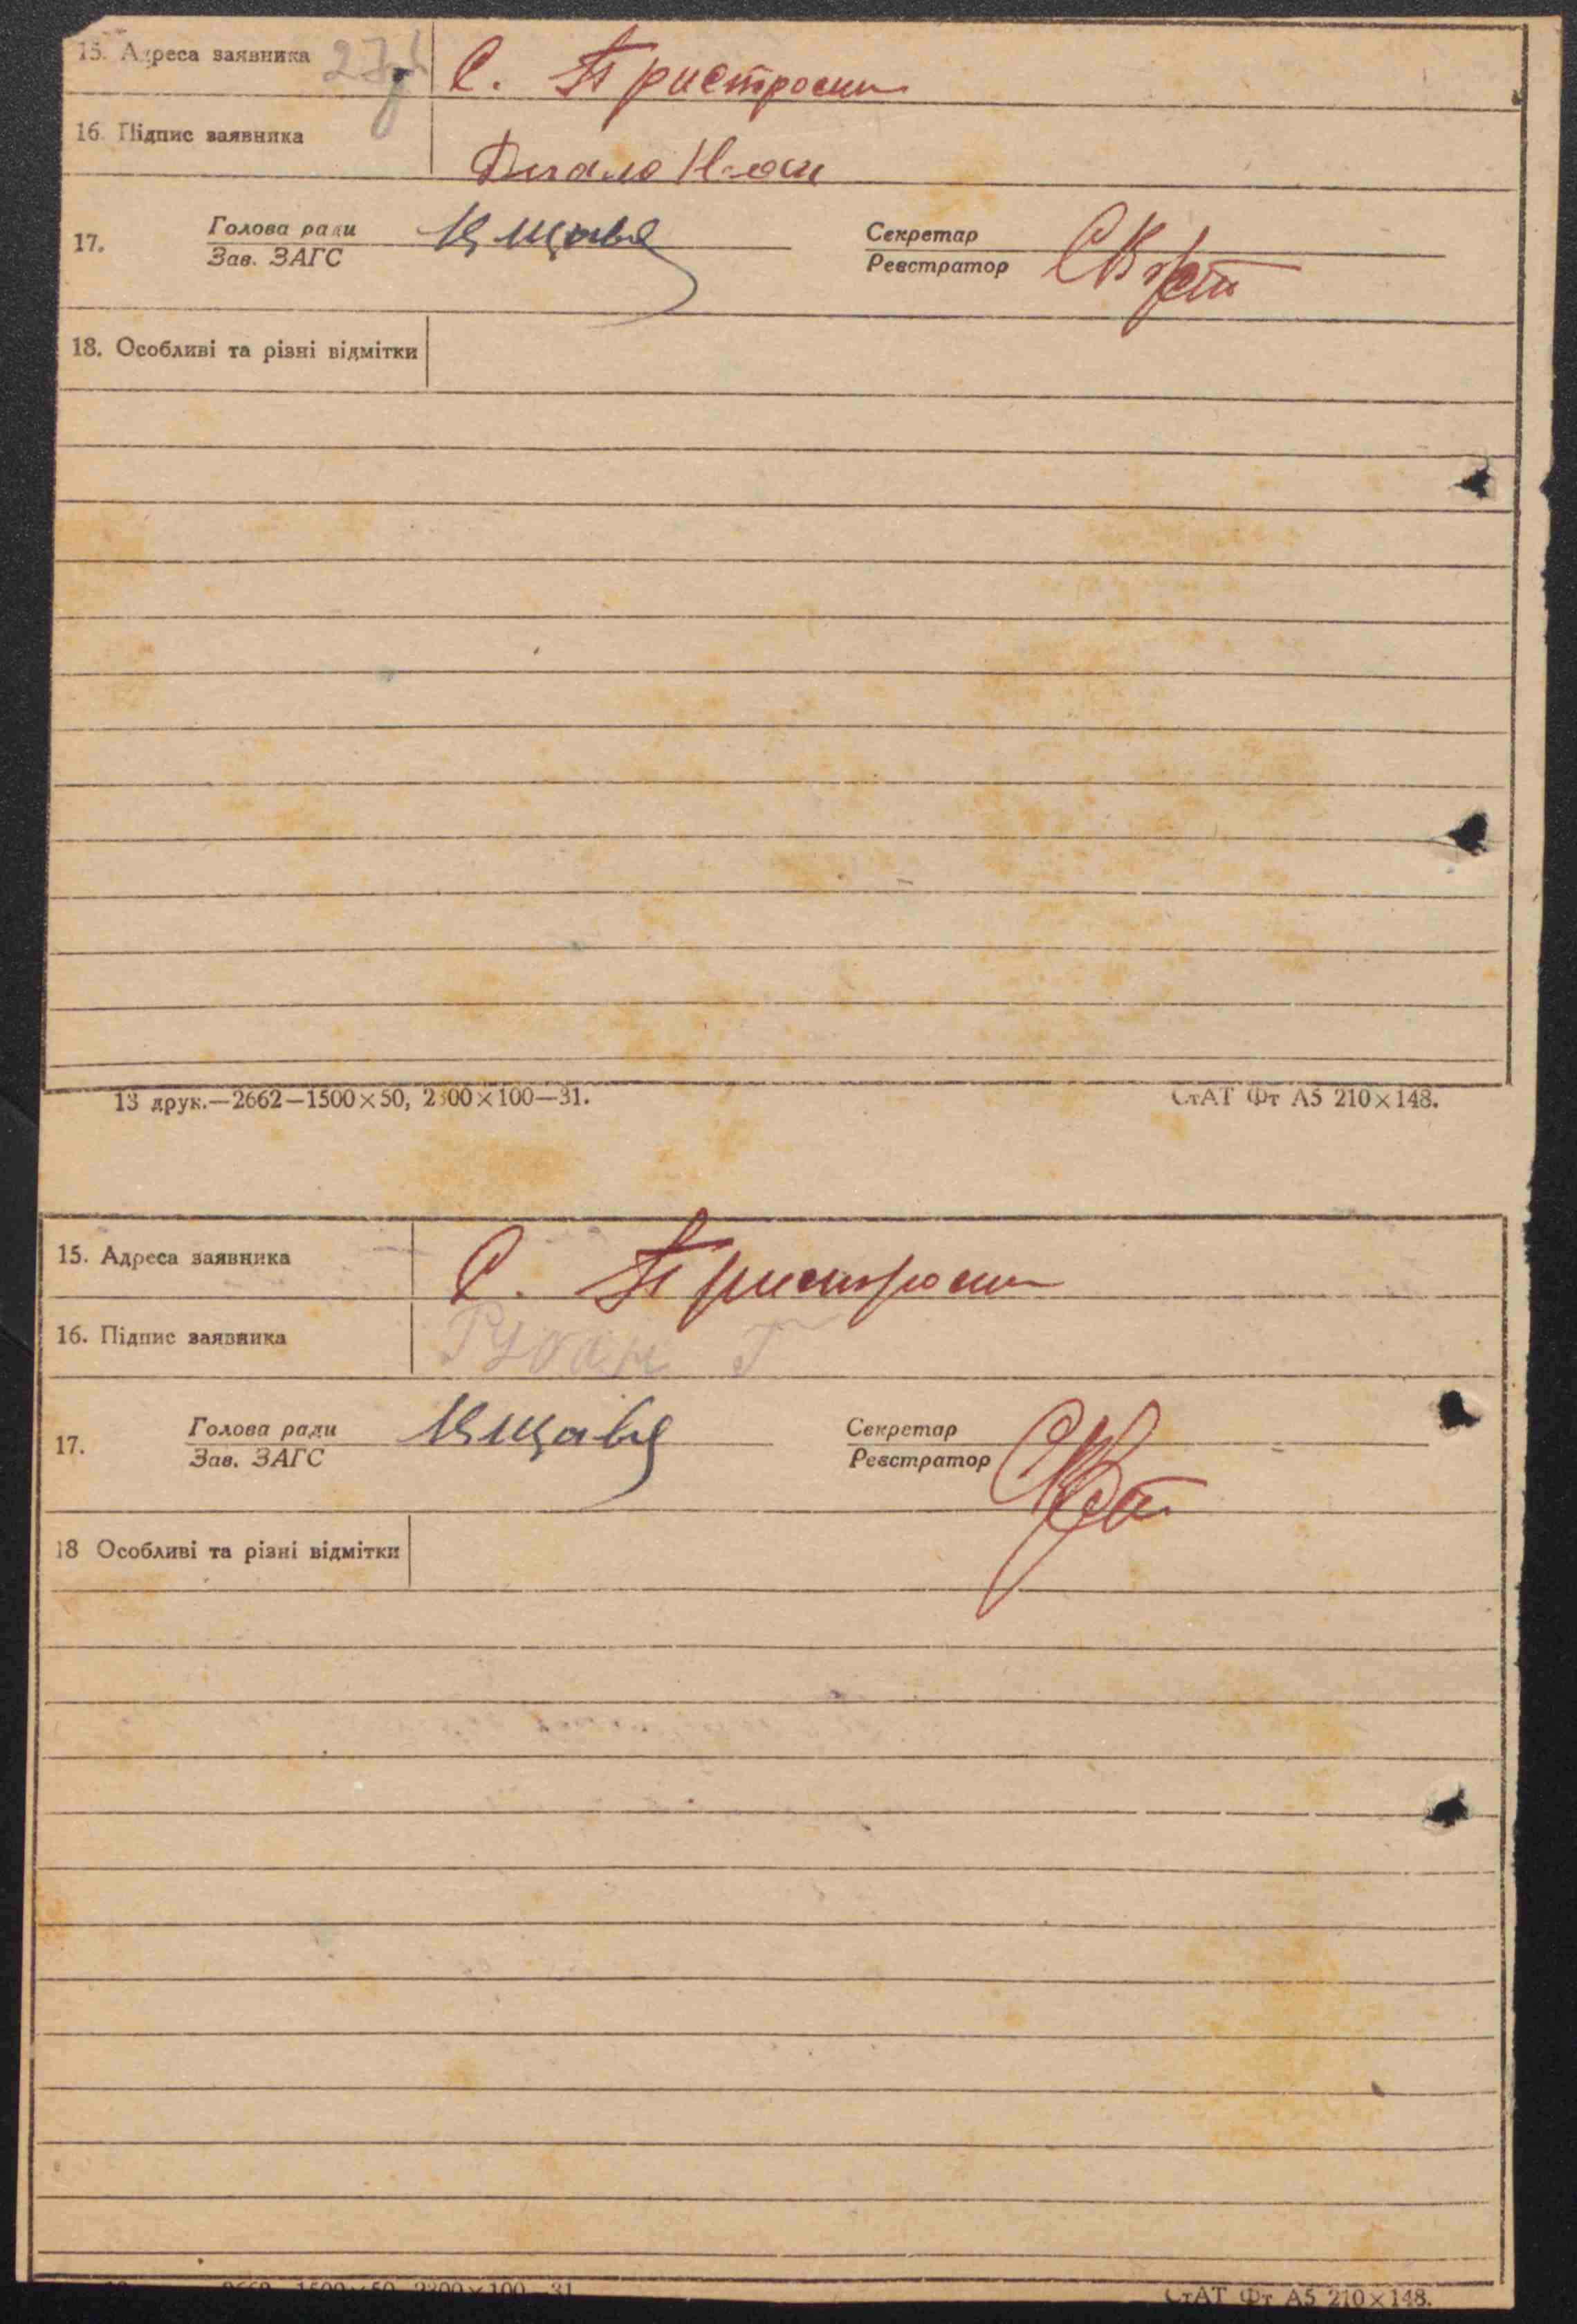 15. Адреса заявника
С. Пристроми
16. Підпис заявника
17.
Голова ради
Зав. ЗАГС
Секретар
Реєстратор
18. Особливі та різні відмітки
13 друк.—2662—1500×50, 2300×100—31.
СтАТ Фт А5 210×148.
15. Адреса заявника
С. Пристроми
16. Підпис заявника
17.
Голова ради
Зав. ЗАГС
Секретар
Реєстратор
18 Особливі та різні відмітки
2662—1500×50, 2300×100—31
СтАТ Фт А5 210×148.